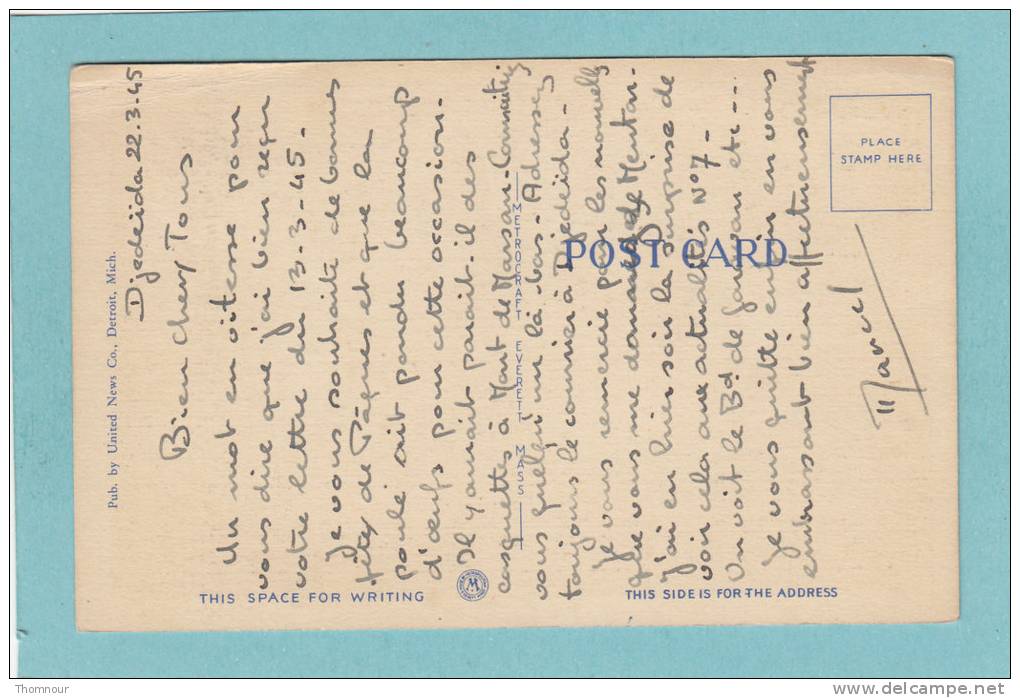 Djedeïda 22.3.45
Bien chers Tous
Un mot en vitesse pour
vous dire que j'ai bien reçu
votre lettre du 13-3-45.
Je vous souhaite de bonnes
fêtes de Pâques et que la
poule ait pondu beaucoup
d'œufs pour cette occasion.
Il y aurait paraît-il des
casquettes à Mont de Marsan-Connaitriez
vous quelqu'un là-bas. Adressez
toujours le courrier à Djedeïda-
Je vous remercie pour les nouvelles
que vous me donnez de Menton-
J'ai eu hier soir la surprise de
voir cela aux actualités N°7-
On voit le Bd de Garavan etc...
Je vous quitte enfin en vous
embrassant bien affectueusement
Marcel
Pub. by United News Co., Detroit, Mich.
METROCRAFT EVERETT MASS
POST CARD
PLACE
STAMP HERE
THIS SPACE FOR WRITING
THIS SIDE IS FOR THE ADDRESS
Thomnour
www.delcampe.net